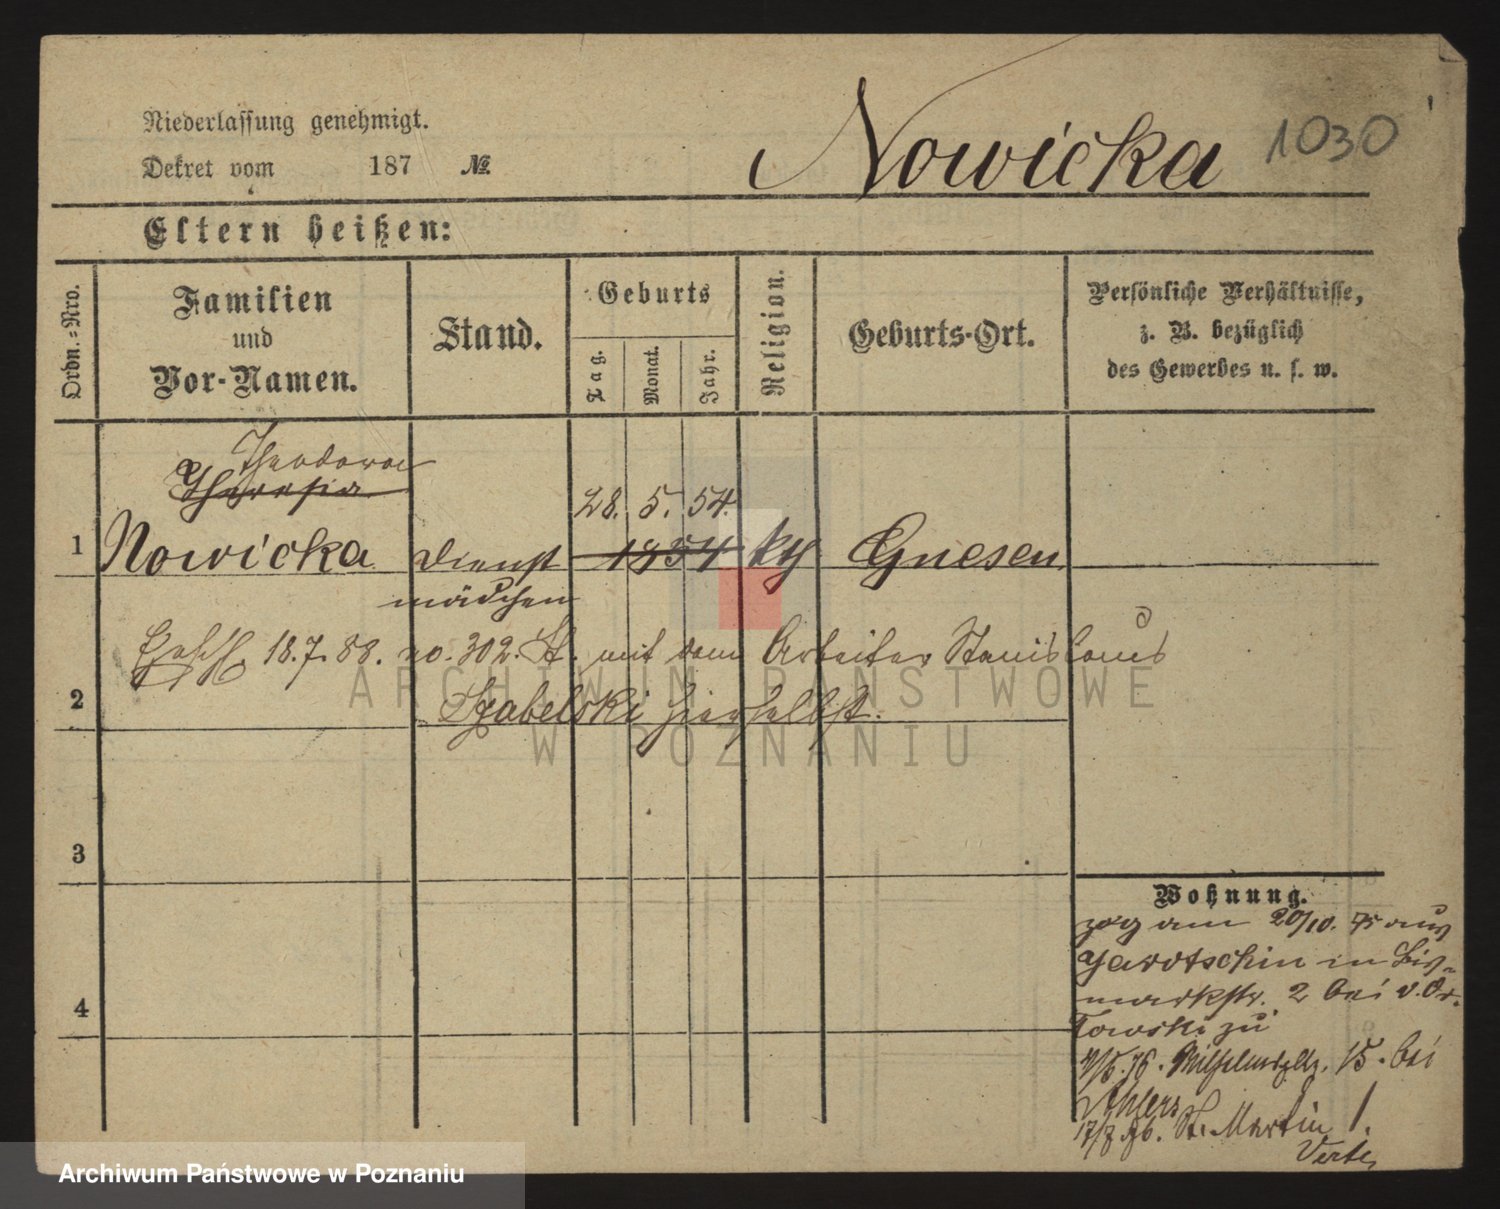 Niederlassung genehmigt.
Dekret vom 187 №
Nowicka 1030
Eltern heißen:
Ordn.-Nro.
Familien
und
Vor-Namen.
Stand.
Geburts
Tag.
Monat.
Jahr.
Religion.
Geburts-Ort.
Persönliche Verhältnisse,
z. B. bezüglich
des Gewerbes u. s. w.
Theodora
Theresia
28. 5. 54.
1 Nowicka Dienst 1854 kth Gnesen
mädchen
18.7.88. no. 302. St. mit dem Arbeiter Stanislaus
2 hierselbst.
3
4
Wohnung.
zog am 20/10. 75 aus
Jarotschin in Bis-
markstr. 2 bei v. Or-
lowski zu
76. Wilhelmsplz. 15. bei
Ahlers
76. St. Martin 1.
Verte
ARCHIWUM PAŃSTWOWE
W POZNANIU
Archiwum Państwowe w Poznaniu